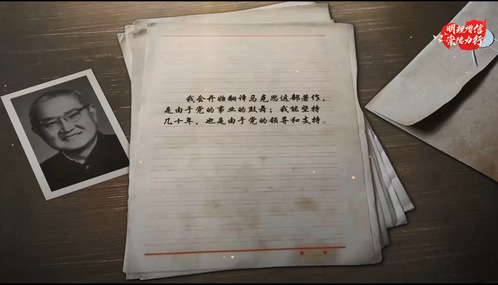 明理增信
崇德力行
我会开始翻译马克思这部著作，
是由于党的事业的鼓舞；我能坚持
几十年，也是由于党的领导和支持。